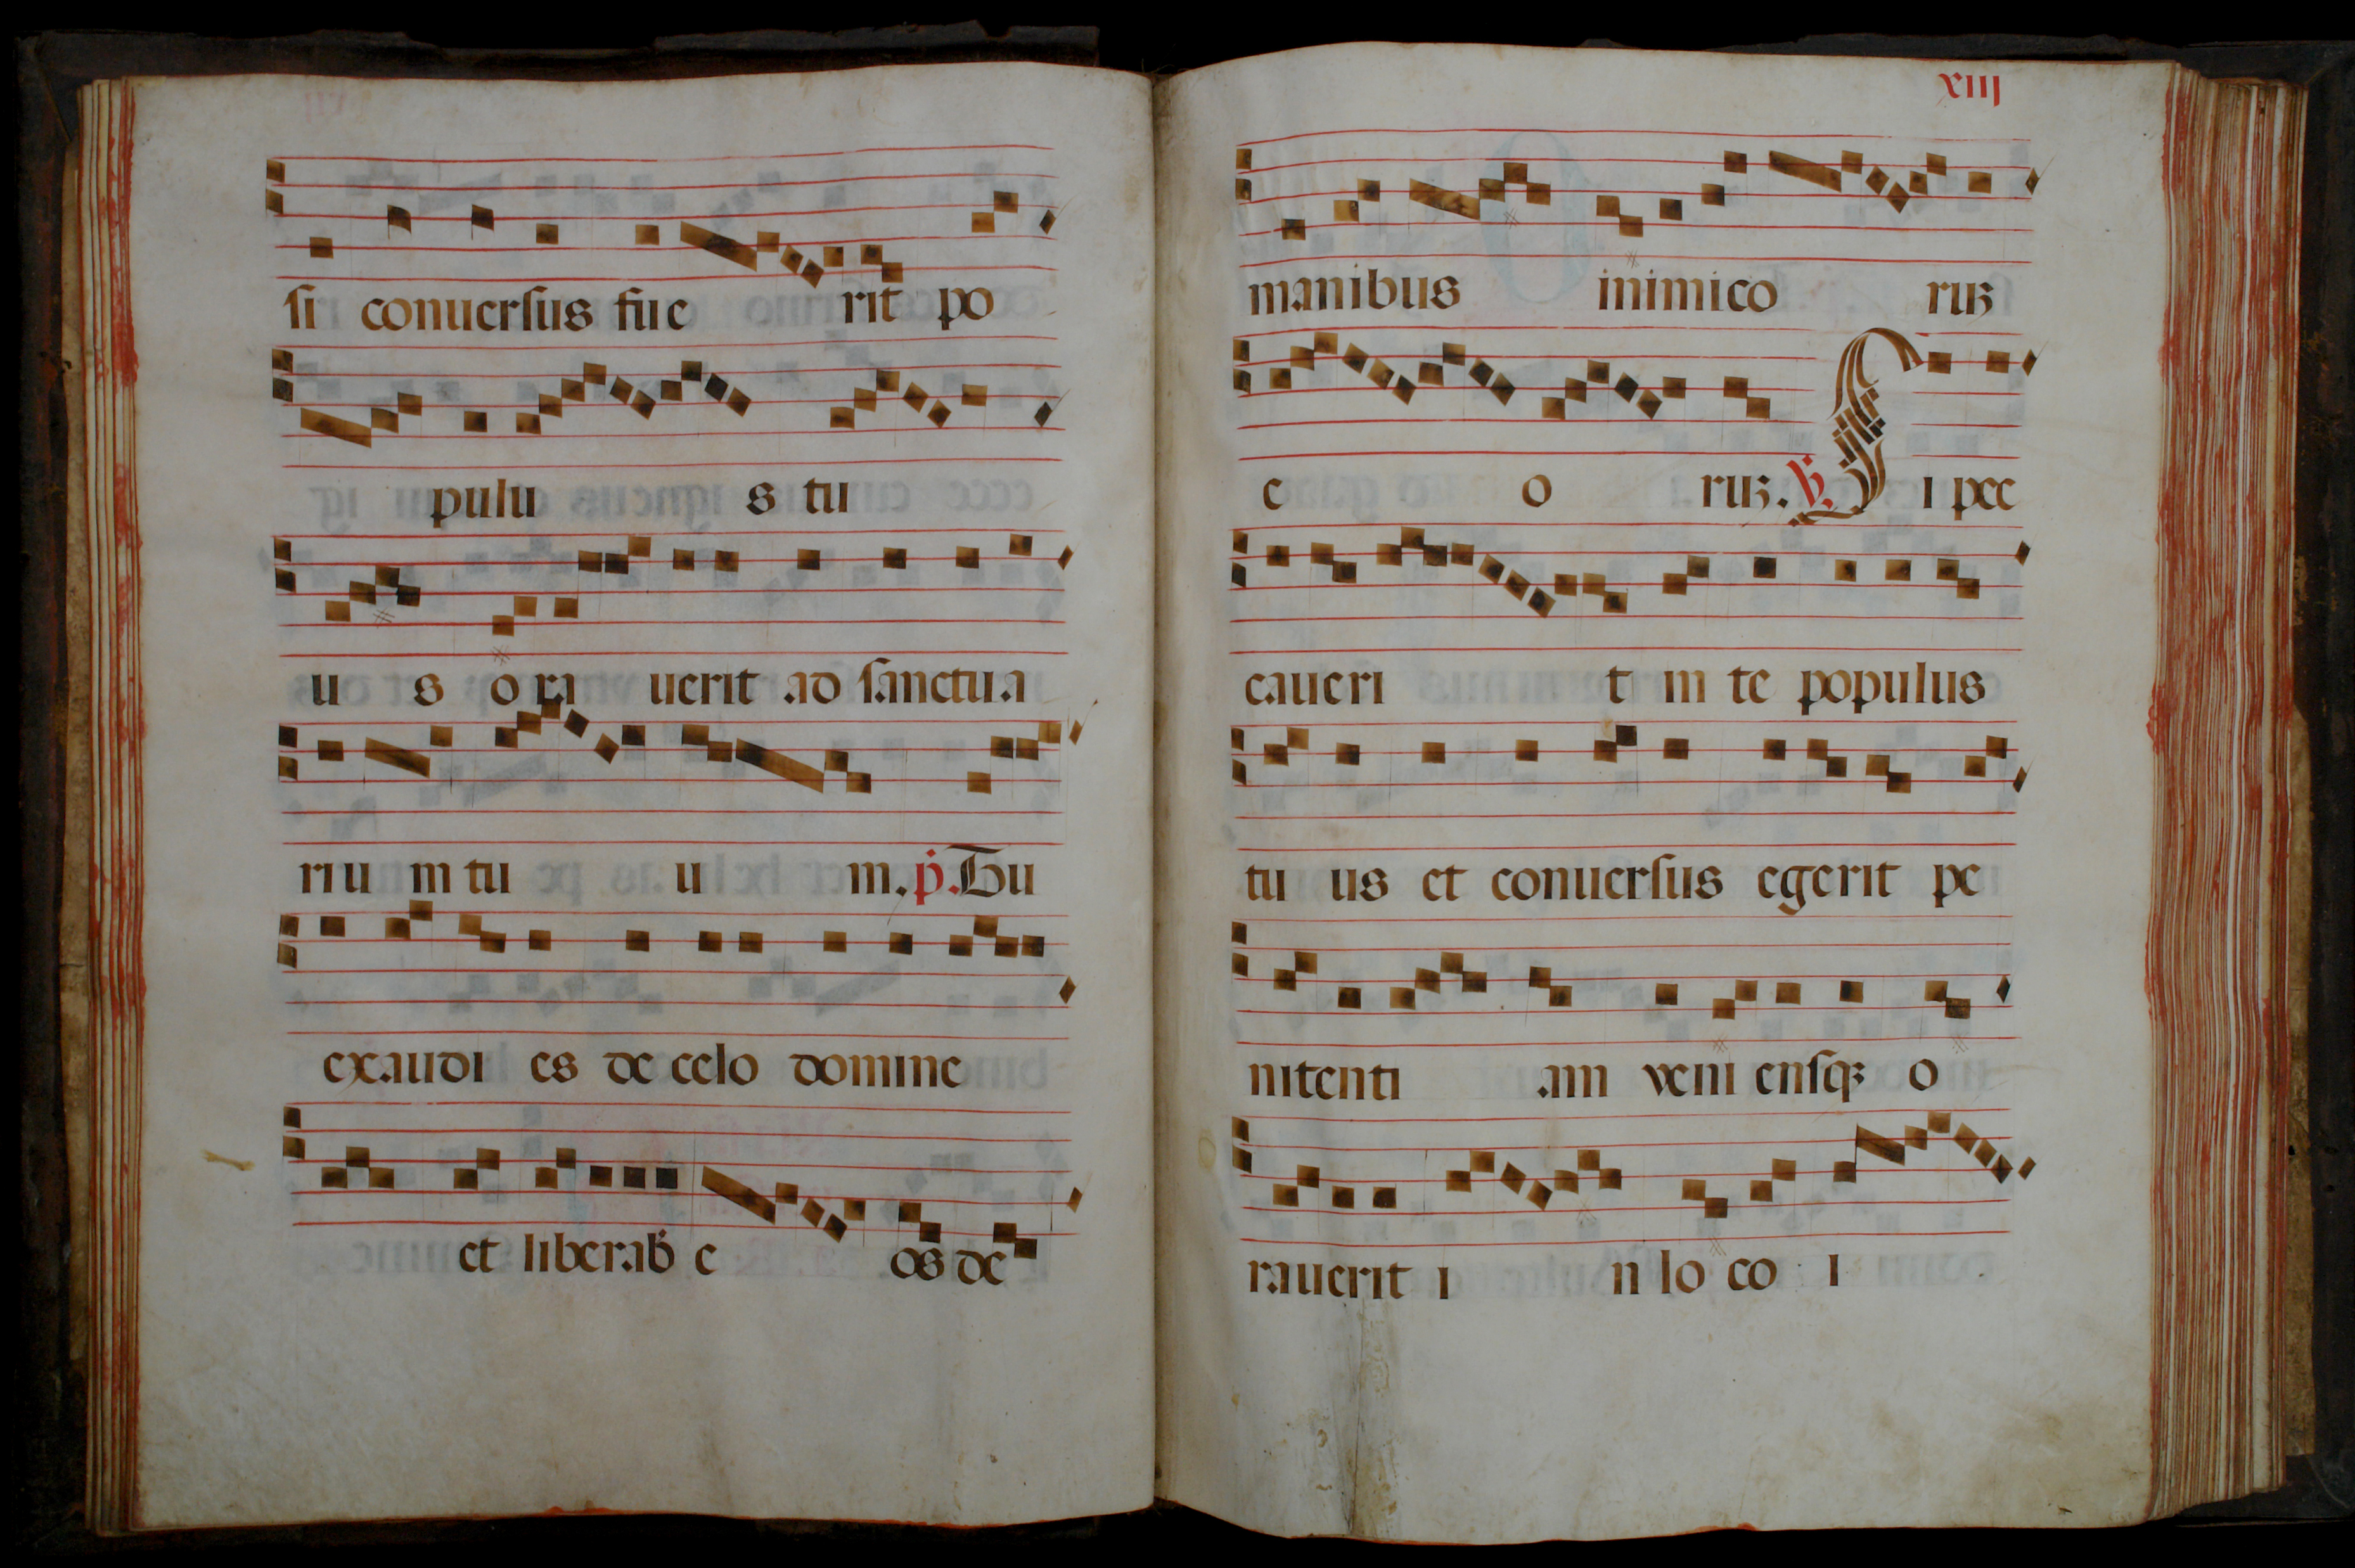 si conuersus fue rit po
pulu s tu
u s o ra uerit ad sanctua
riu m tu u m. p. Tu
exaudi es de celo domine
et liberab e os de
xiii
manibus inimico ruʒ
e o ruʒ. V. S i pec
caueri t in te populus
tu us et conuersus egerit pe
nitenti am veni ensqʒ o
rauerit i n lo co i